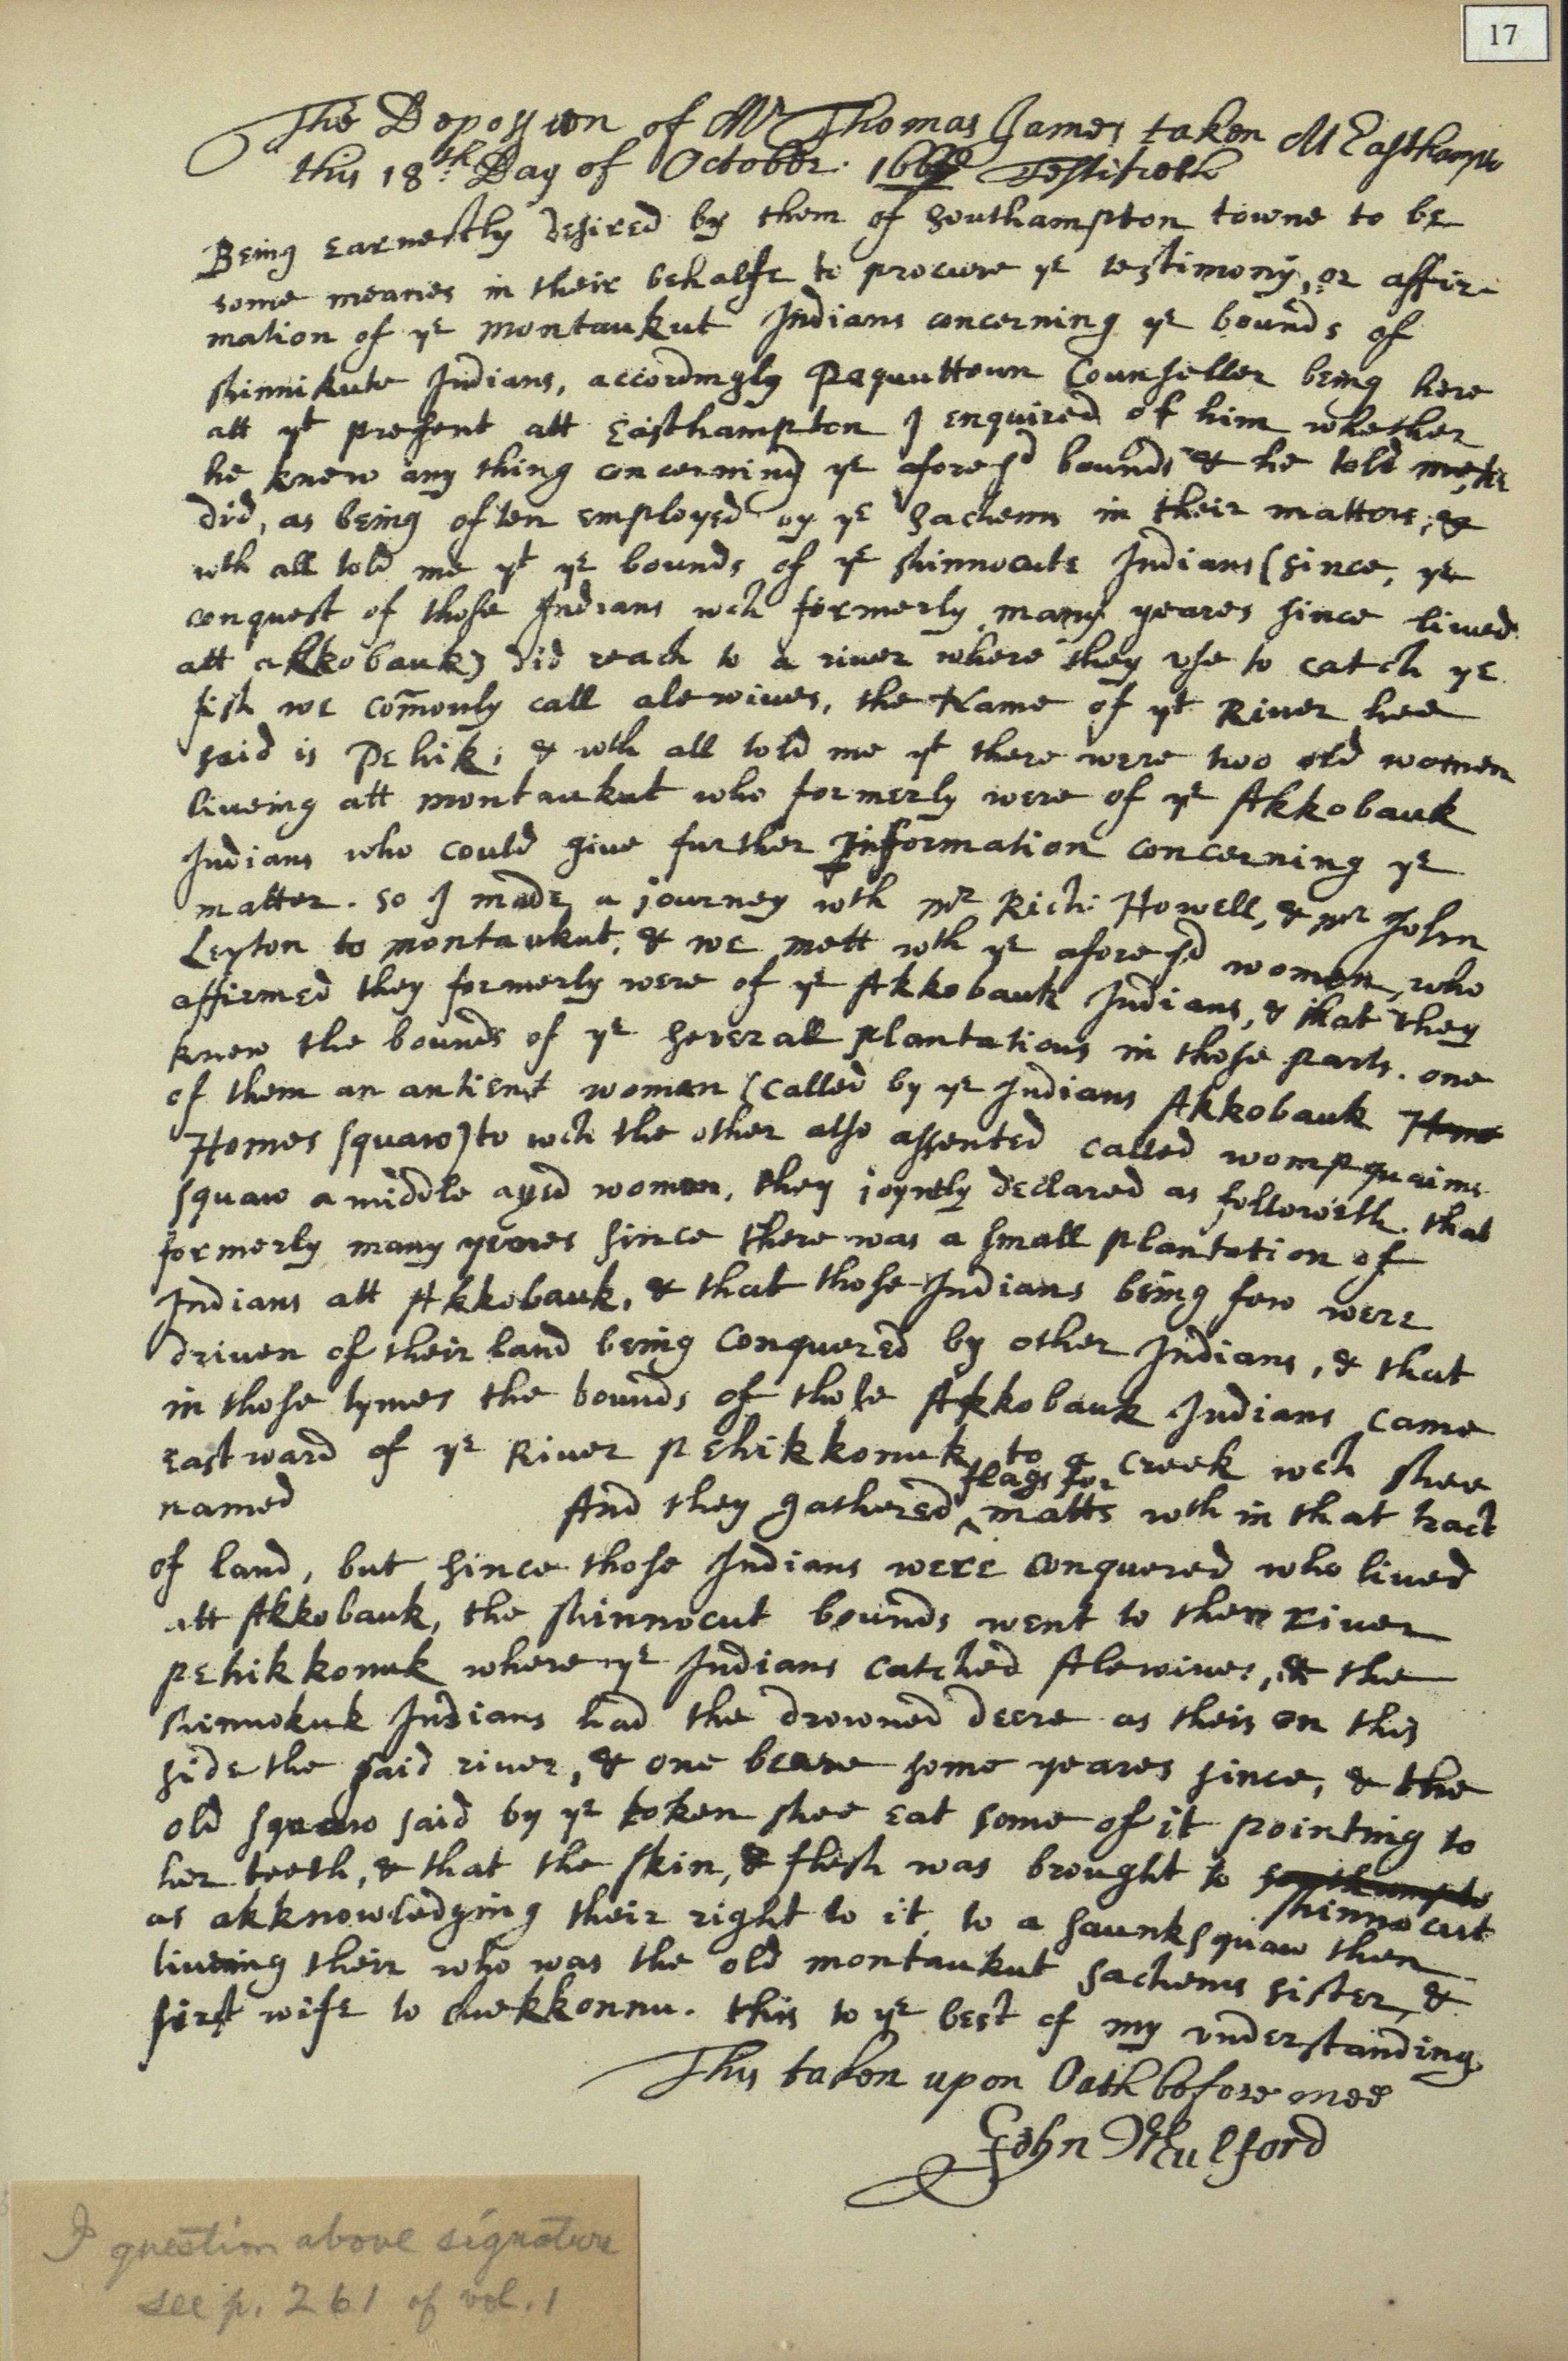 17
The Depossion of Mr Thomas James taken At Easthampto
this 18th Day of October: Testifieth
Being earnestly desired by them of Southampton towne to be
some meanes in their behalfe to procure ye testimony, or affir-
mation of ye montaukut Indians concerning ye bounds of
shinnikute Indians, accordingly Paquuttoun Counseller being here
att yt present att Easthampton I enquired of him whether
he knew any thing concerning ye afore sd bounds & he told me, he
did, as being often employed by ye Sachems in their matters, &
wth all told me yt ye bounds of ye shinnocute Indians (since, ye
conquest of those Indians wch formerly many yeares since liued
att akkobauk) did reach to a riuer where they vse to catch ye
fish we comonly call alewiues, the Name of yt Riuer hee
said is Pehik, & wth all told me yt there were two old women
liueing att montaukut who formerly were of ye Akkobauk
Indians who could giue further Information concerning ye
matter. so I made a journey wth mr Rich: Howell, & mr John
Leyton to montaukut, & we mett wth ye afore sd women, who
affirmed they formerly were of ye Akkobauk Indians, & that they
knew the bounds of ye seuerall plantations in those parts. one
of them an antient woman (called by ye Indians Akkobauk Home
Homes squaw) to wch the other also assented called wompquaims
squaw a middle aged woman, they joyntly declared as followeth. that
formerly many yeares since there was a small plantation of
Indians att Akkobauk, & that those Indians being few were
driuen of their land being Conquered by other Indians, & that
in those tymes the bounds of those Akkobauk Indians came
Eastward of ye Riuer pehikkonuk to a Creek wch shee
named And they gathered ^ flags for matts wth in that tract
of land, but since those Indians were conquered who liued
att Akkobauk, the shinnocut bounds went to the riuer
pehikkonuk where ye Indians catched Alewiues, & the
shinnokuk Indians had the drowned deere as theirs on this
side the said riuer, & one beare some yeares since, & the
old squaw said by ye token shee eat some of it pointing to
her teeth, & that the skin, & flesh was brought to southampto shinnocut
as akknowledging their right to it, to a saunk squaw then
liueing their who was the old montaukut sachems sister, &
first wife to . this to ye best of my vnderstanding
This taken upon Oath before mee
John Mulford
I question above signature
see p. 261 of vol. 1